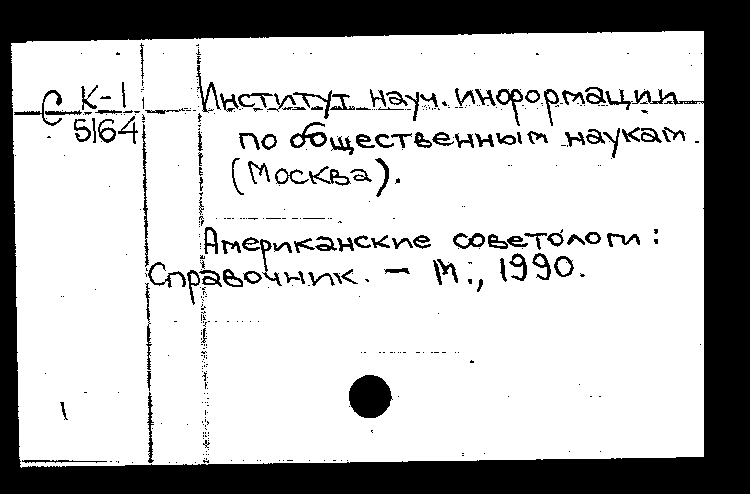 С К-1
5164
Институт науч. информации
по общественным наукам.
(Москва).
Американские советологи:
Справочник. — М., 1990.